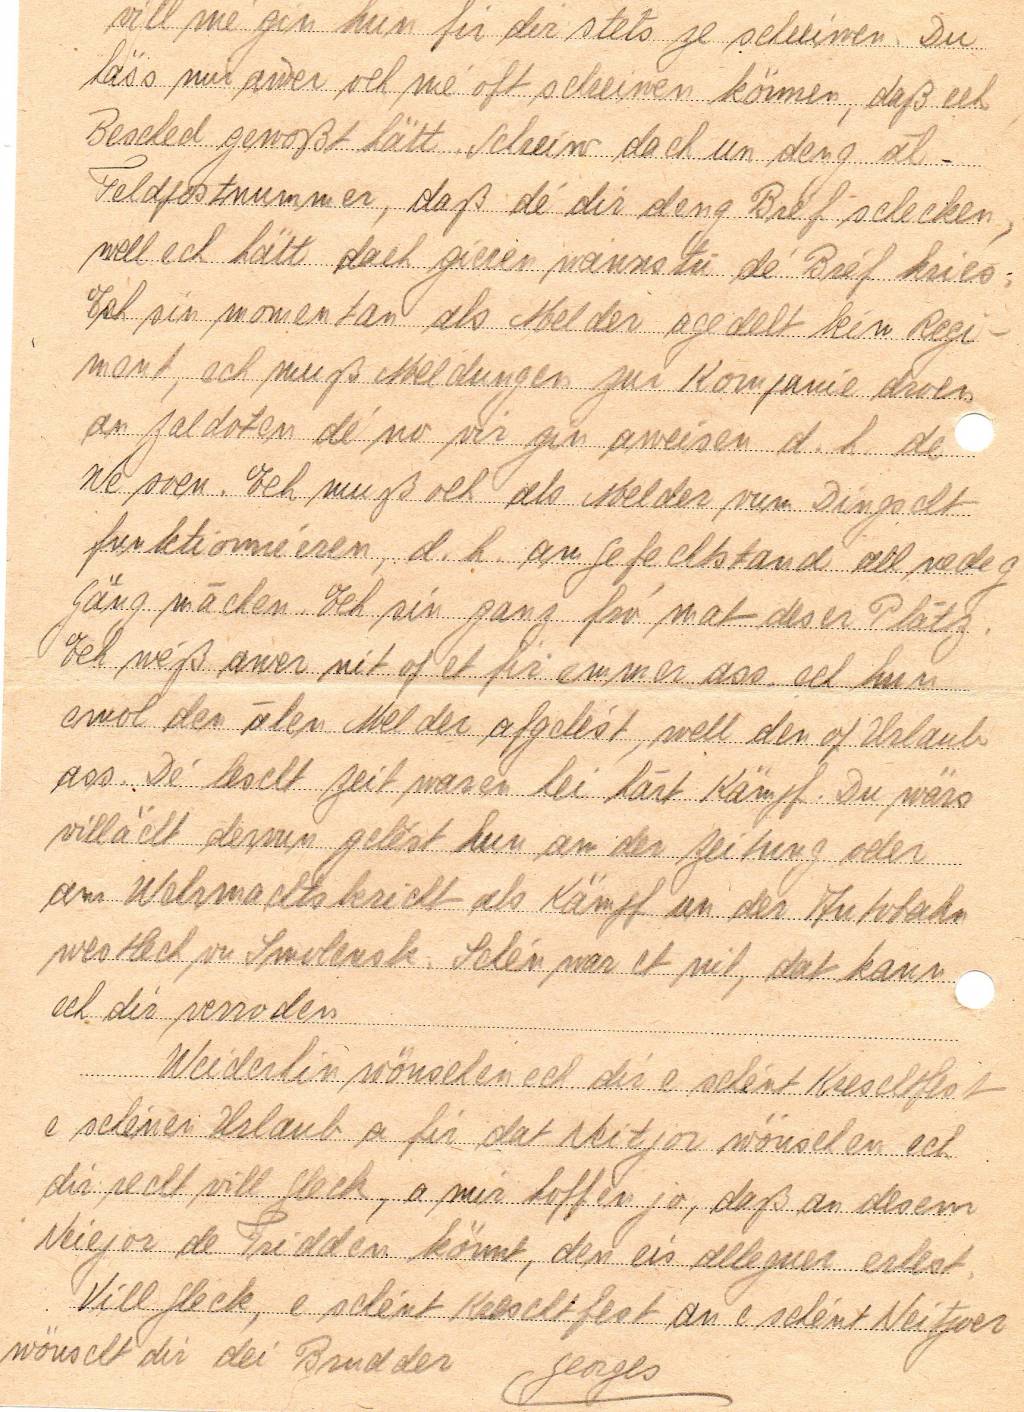 vill mé gin hun fir dir stets ze schreiwen. Du
häss mir awer och mé oft schreiwen können, daß ech
Bescheed gewoßt hätt. Schreiw doch un deng al
Feldpostnummer, daß dé dir deng Bréf schecken,
well ech hätt doch gieren wannstu dé Bréf kries.
Ech sin momentan als Melder agedelt beim Regi-
ment, ech muß Meldungen zur Kompanie droen
an Zaldoten dé no vir gin aweisen d. h. de
We soen. Ech muß och als Melder vum Dingscht
funktionnéren, d. h. am Gefechtstand all nedeg
Gäng māchen. Ech sin ganz fró mat deser Plātz.
Ech wéß awer nit of et fir emmer ass. ech hun
emol den ālen Melder afgelést, well den of Urlaub
ass. Dé lescht Zeit waren hei hārt Kämpf. Du wärs
villächt dervun gelést hun an der Zeitung oder
am Wehrmachtsbericht als Kämpf un der Autobahn
westlech vu Smolensk. Schén war et nit, dat kann
ech dir verroden
Weiderhin wönschen ech dir e schént Kreschtfest
e schénen Urlaub a fir dat Neitjor wönschen ech
dir recht vill Gleck, a mir hoffen jo, daß an desem
Neiejor de Fridden könnt, den eis alleguer erlést.
Vill Gleck, e schént Kreschtfest an e schént Neitjoer
wönscht dir dei Brudder Georges